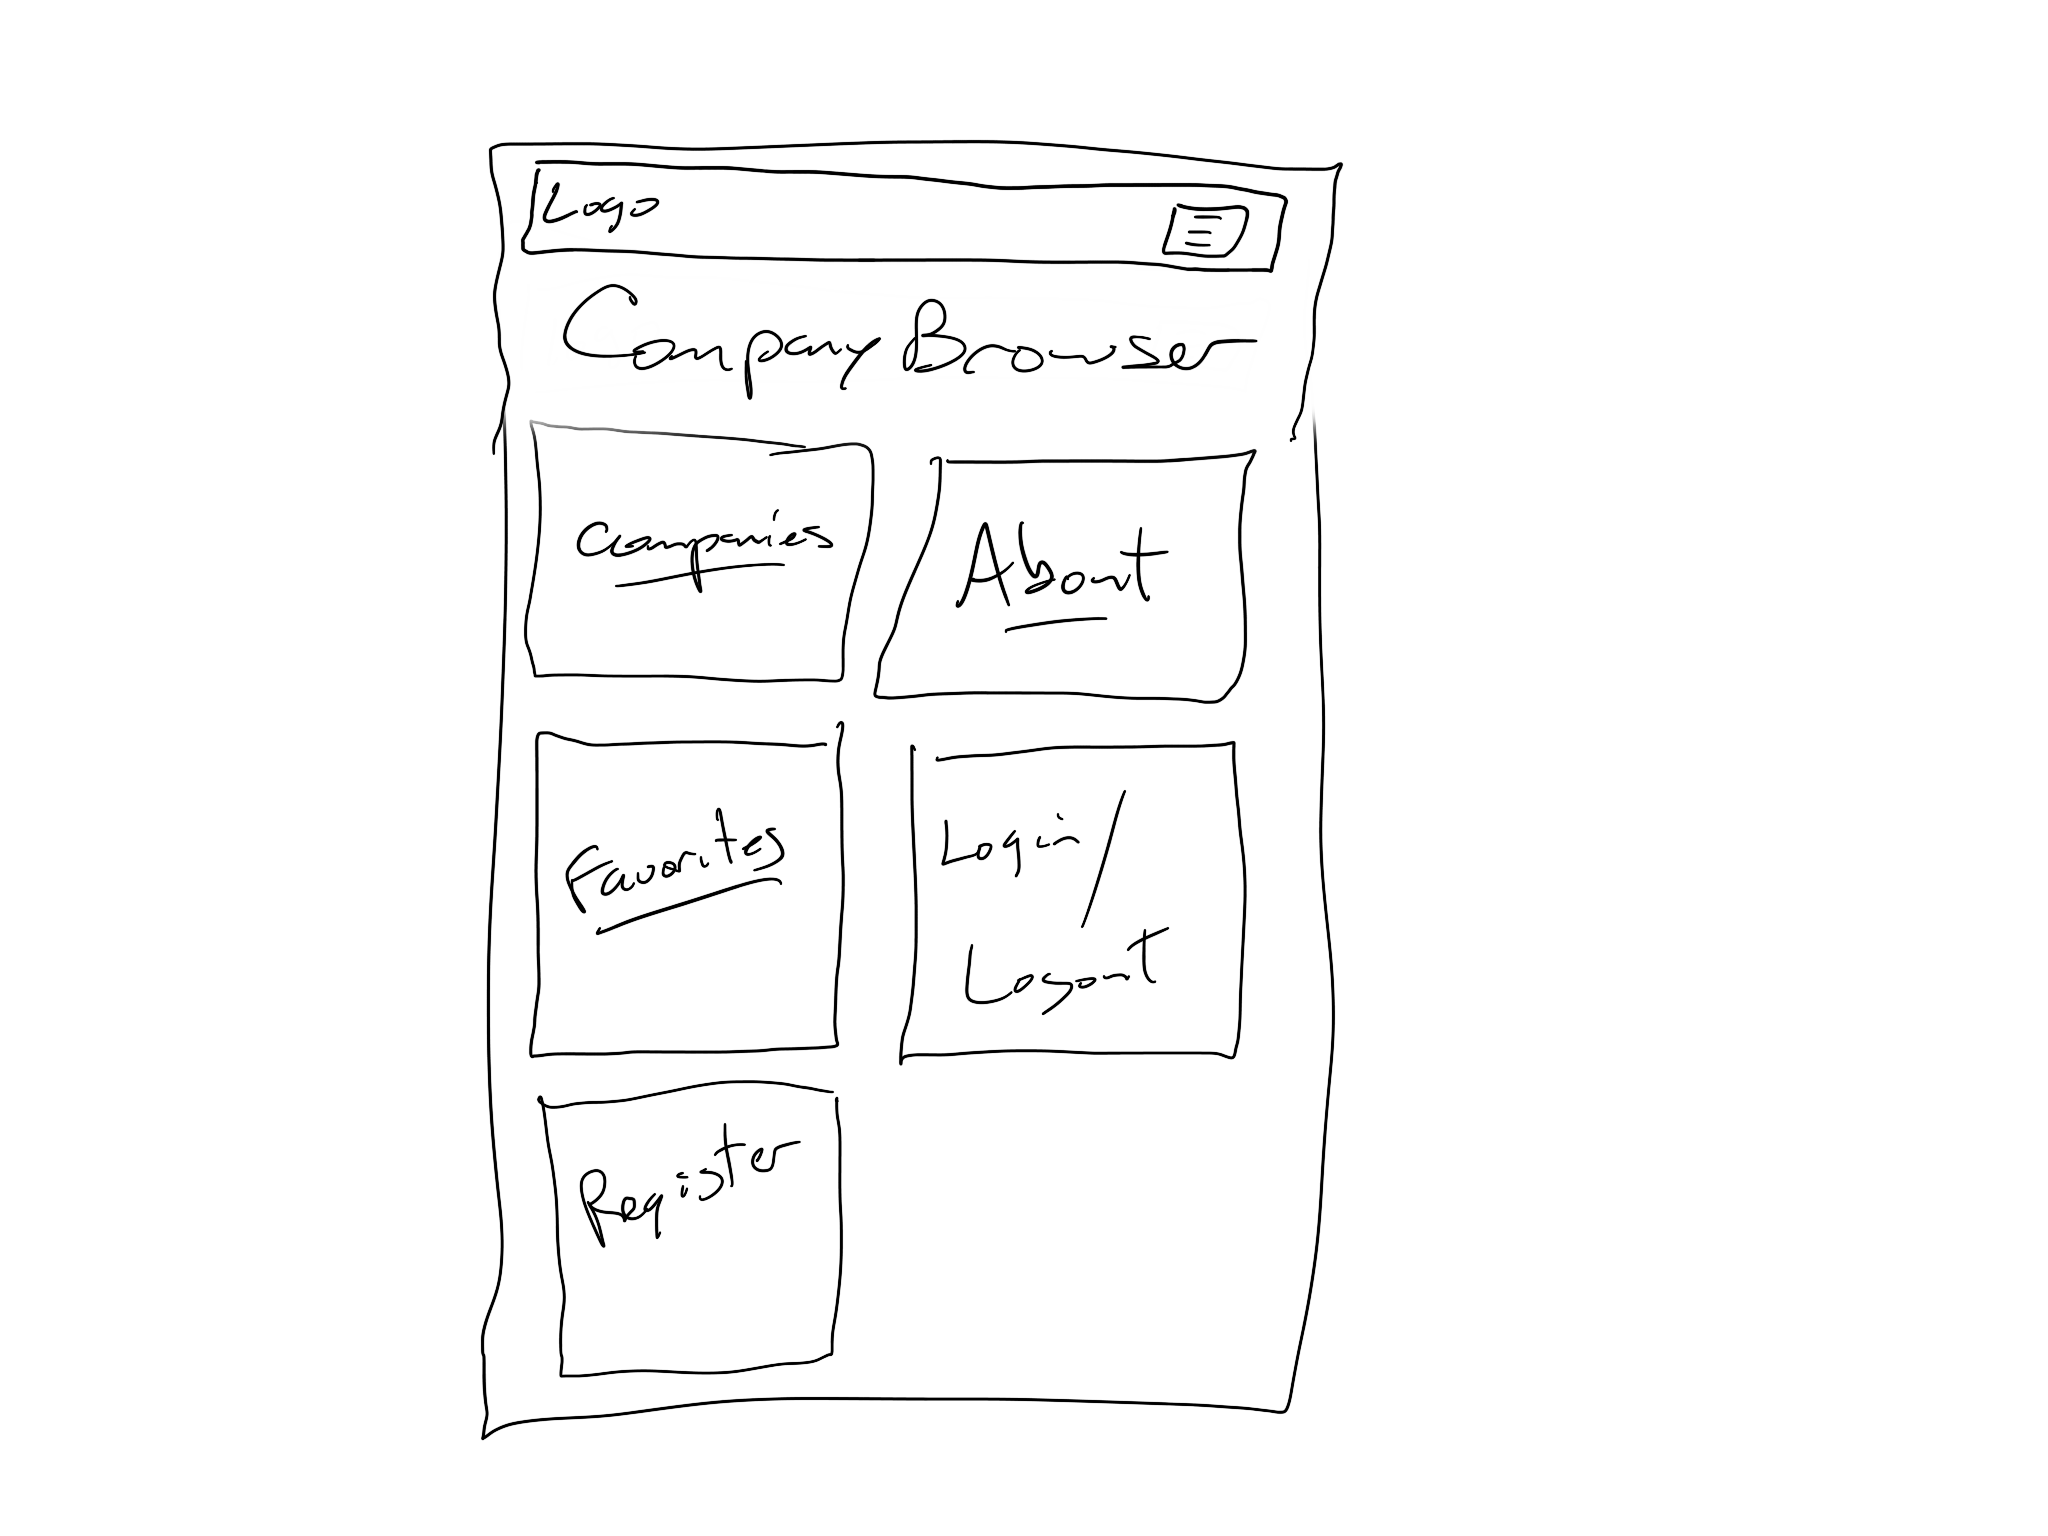 Logo
Company Browser
Companies
About
Favorites
Login/
Logout
Register